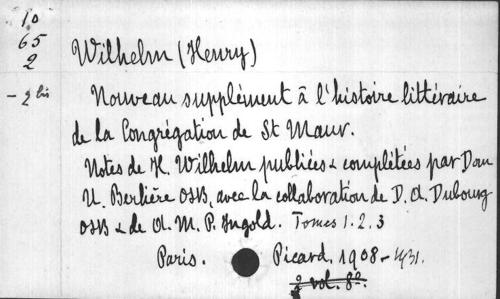 10
65
2
- 2 bis
Wilhelm (Henry)
Nouveau supplément à l'histoire littéraire
de la Congrégation de St Maur.
Notes de H. Wilhelm publiées & complétées par Dom
U. Berlière OSB, avec la collaboration de D. A. Dubourg
OSB & de A. M. P. Ingold. Tomes 1. 2. 3
Paris. Picard. 1908-1931.
vol. 8º